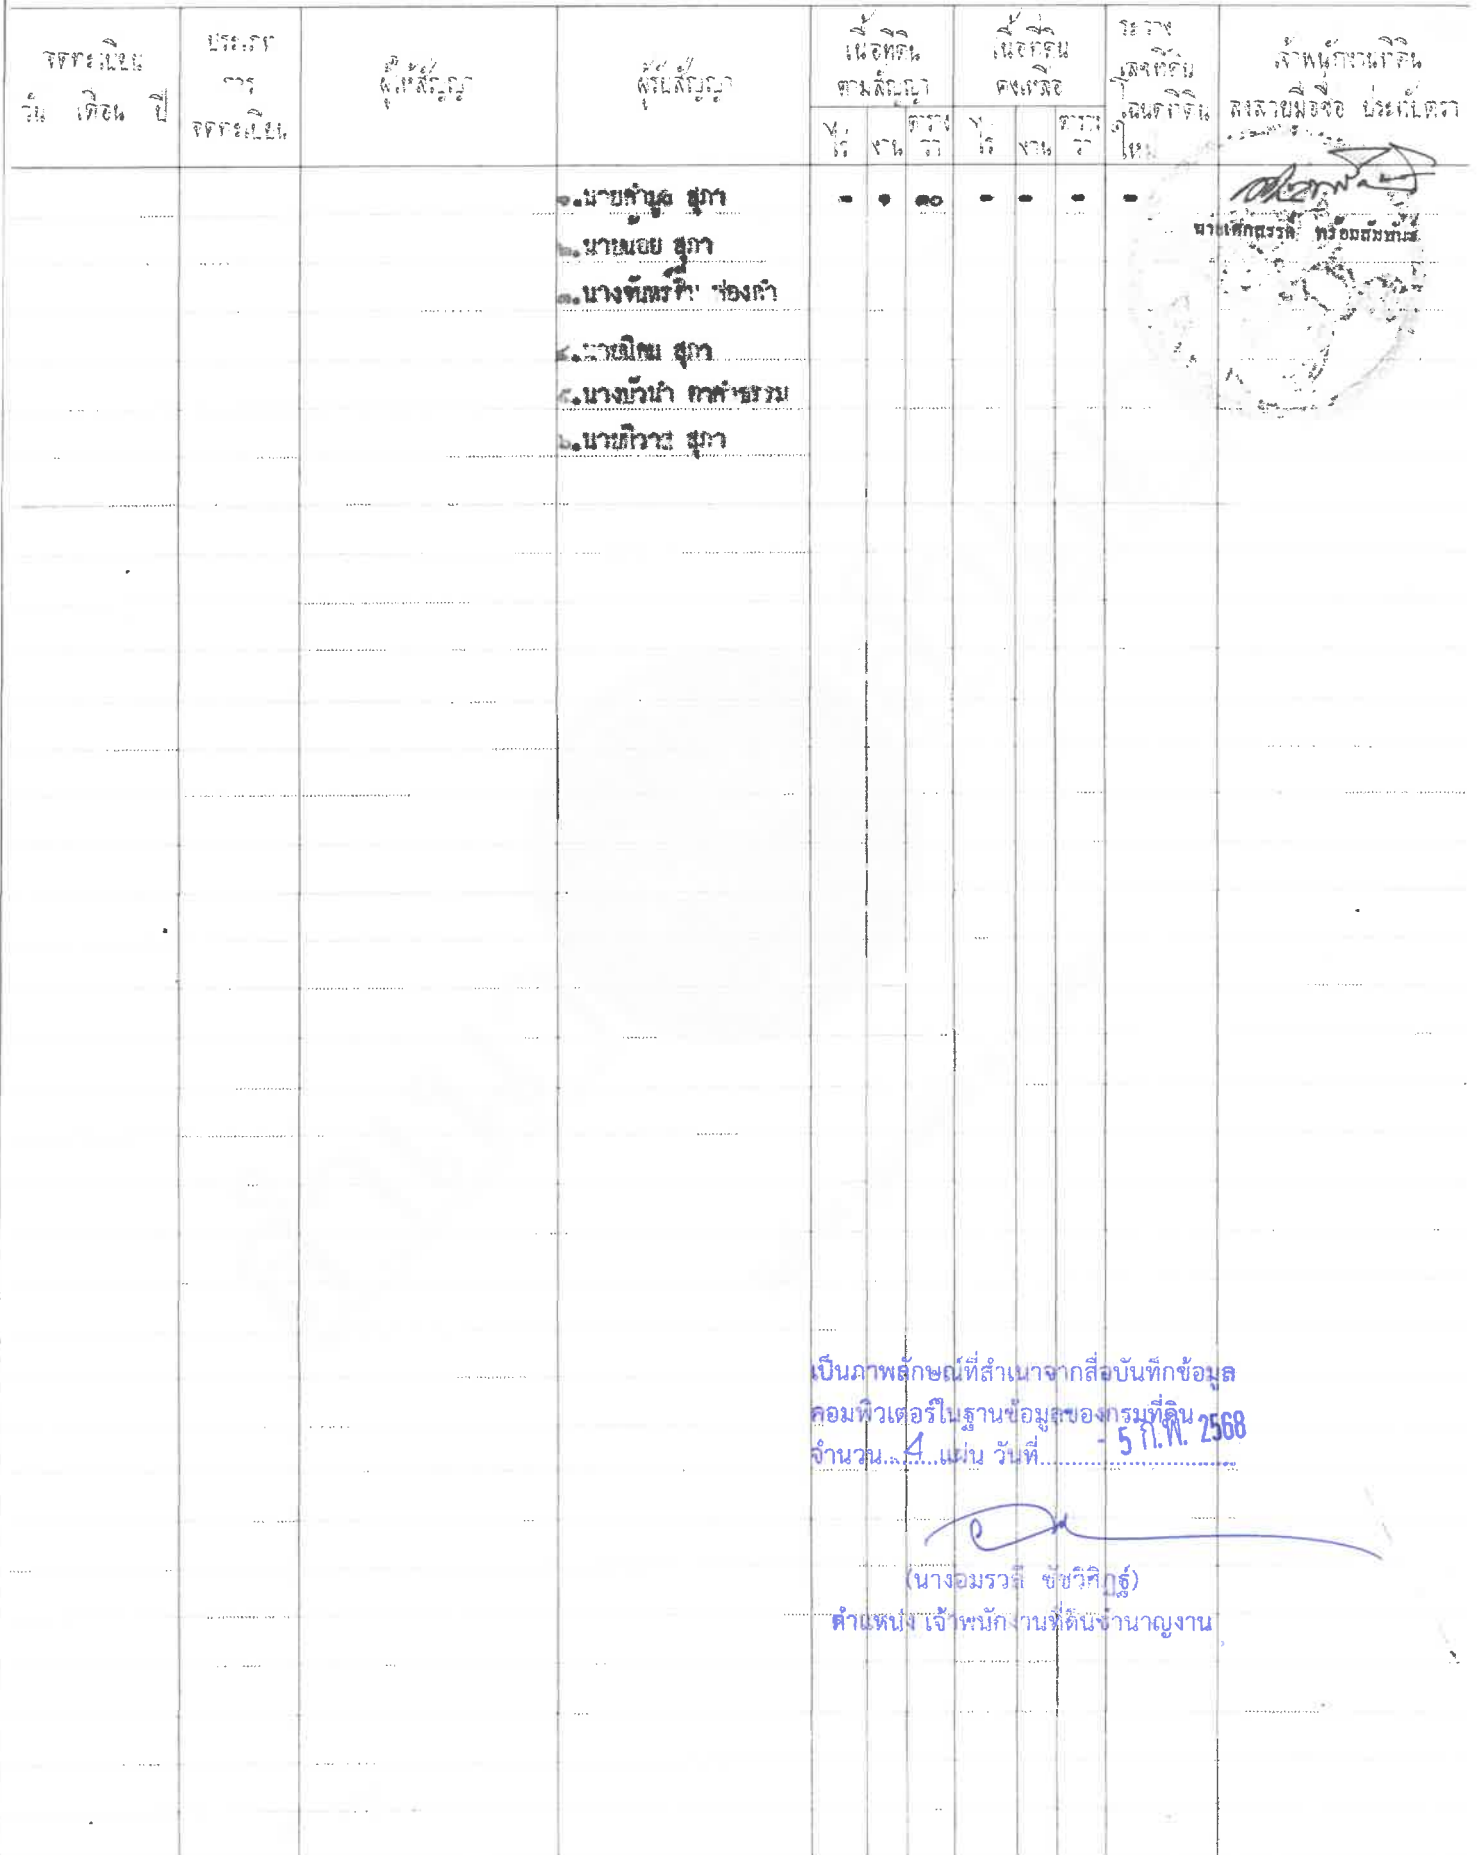 จดทะเบียน
วัน เดือน ปี
ประเภท
การ
จดทะเบียน
ผู้ให้สัญญา
ผู้รับสัญญา
เนื้อที่ดิน
ตามสัญญา
ไร่ งาน ตาราง
วา
เนื้อที่ดิน
คงเหลือ
ไร่ งาน ตาราง
วา
ระวาง
เลขที่ดิน
โฉนดที่ดิน
ใหม่
เจ้าพนักงานที่ดิน
ลงลายมือชื่อ ประทับตรา
๑.นายคำมูล สุภา - ๑ ๓๐ - - - -
นายเศกสรรค์ พร้อมสัมพันธ์
๒.นายน้อย สุภา
๓.นางจันทร์
๔. สุภา
๕.นางบัวนำ
๖.นาย สุภา
เป็นภาพลักษณ์ที่สำเนาจากสื่อบันทึกข้อมูล
คอมพิวเตอร์ในฐานข้อมูลของกรมที่ดิน
จำนวน.........แผ่น วันที่ - 5 ก.พ. 2568
(นางอมรวลี
ตำแหน่ง เจ้าพนักงานที่ดินชำนาญงาน